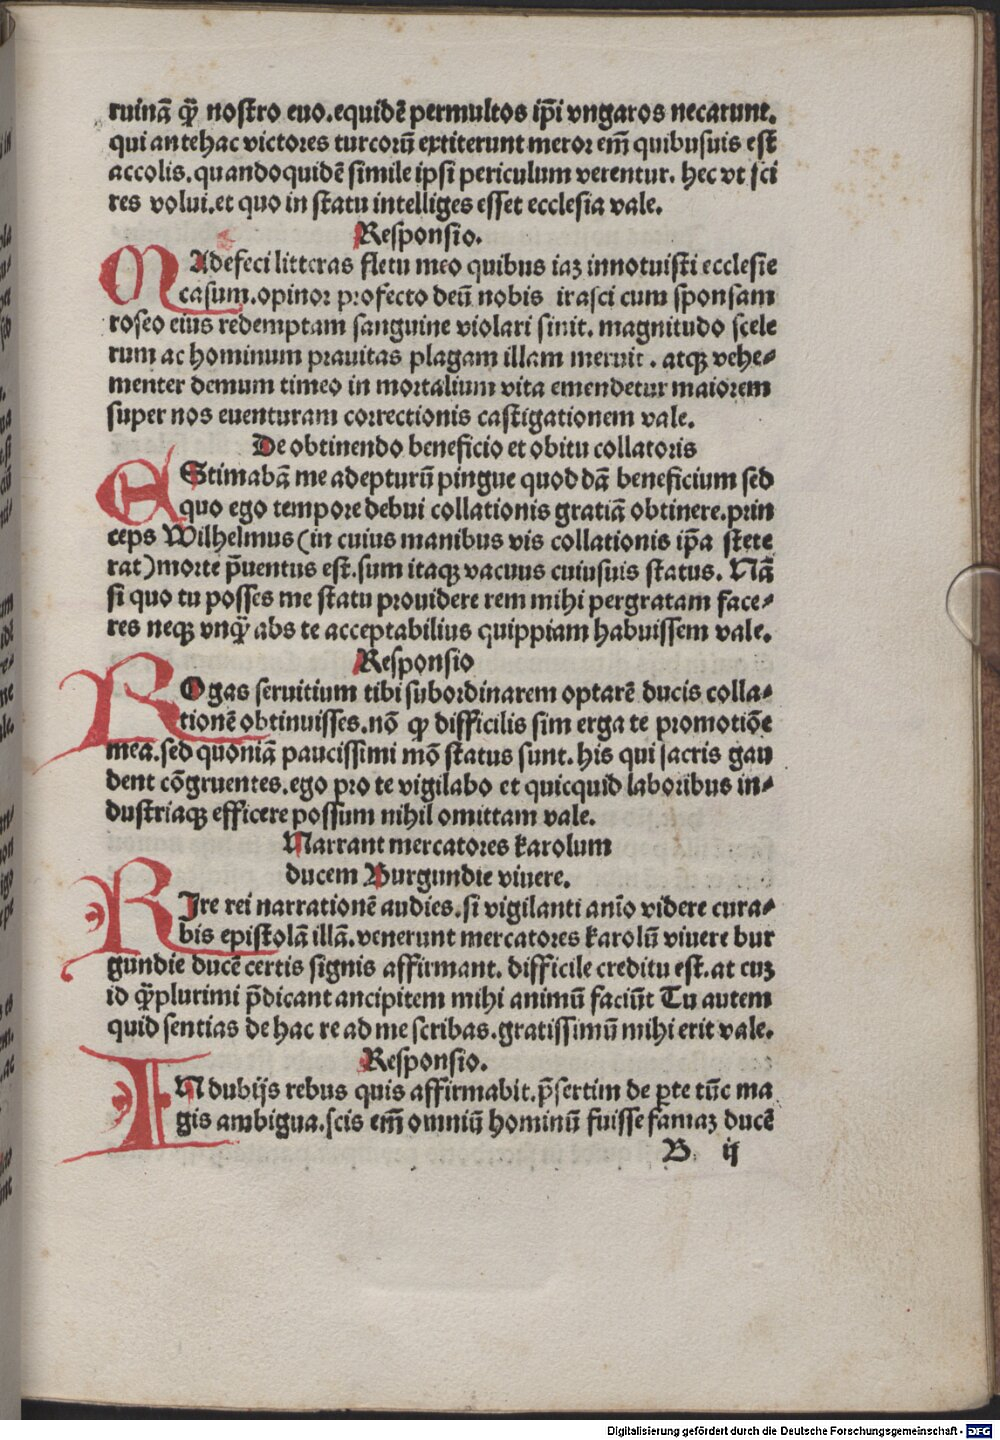 ruinā qꝫ nostro euo.equidē permultos ip̄i vngaros necarunt.
qui antehac victores turcorū extiterunt meror em̄ quibusuis est
accolis.quandoquidē simile ipsi periculum verentur. hec vt sci
res volui.et quo in statu intelliges esset ecclesia vale.
Responsio.
MAdefeci litteras fletu meo quibus iaꝫ innotuisti ecclesie
casum.opinor profecto deū nobis irasci cum sponsam
roseo eius redemptam sanguine violari sinit. magnitudo scele
rum ac hominum prauitas plagam illam meruit. atqꝫ vehe⸗
menter demum timeo in mortalium vita emendetur maiorem
super nos euenturam correctionis castigationem vale.
De obtinendo beneficio et obitu collatoris
EStimabā me adepturū pingue quod dā beneficium sed
quo ego tempore debui collationis gratiā obtinere.prin
ceps Wilhelmus(in cuius manibus vis collationis ip̄a stete
rat)morte p̄uentus est.sum itaqꝫ vacuus cuiusuis status. Nā
si quo tu posses me statu prouidere rem mihi pergratam face⸗
res neqꝫ vnqꝫ̄ abs te acceptabilius quippiam habuissem vale.
Responsio
ROgas seruitium tibi subordinarem optarē ducis colla⸗
tionē obtinuisses.nō qꝫ difficilis sim erga te promotiōe
mea.sed quoniā paucissimi mō status sunt. his qui sacris gau
dent cōgruentes.ego pro te vigilabo et quicquid laboribus in⸗
dustriaqꝫ efficere possum nihil omittam vale.
Narrant mercatores karolum
ducem Burgundie viuere.
RJre rei narrationē audies.si vigilanti anīo videre cura⸗
bis epistolā illā.venerunt mercatores karolū viuere bur
gundie ducē certis signis affirmant. difficile creditu est.at cuꝫ
id qꝫ̄plurimi p̄dicant ancipitem mihi animū faciūt Tu autem
quid sentias de hac re ad me scribas.gratissimū mihi erit vale.
Responsio.
IN dubijs rebus quis affirmabit.p̄sertim de ꝑte tūc ma
gis ambigua.scis em̄ omniū hominū fuisse famaꝫ ducē
B ij
Digitalisierung gefördert durch die Deutsche Forschungsgemeinschaft - DFG